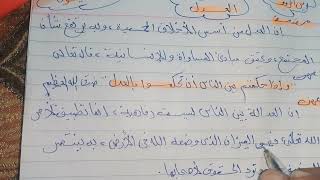 ان العدل من أسس الأخلاق الحميدة، وبه يرتفع شأن
المجتمع، وتحقق مبادئ المساواة والإنسانية، قال تعالى
وإذا حكمتم بين الناس أن تحكموا بالعدل صدق الله العظيم
ان العدالة بين الناس ليست رفاهية، انها تطبيق لأمر
الله تعالى، فهي الميزان الذي وضعه الله في الأرض، به ينتصر
الحقوق لأصحابها.